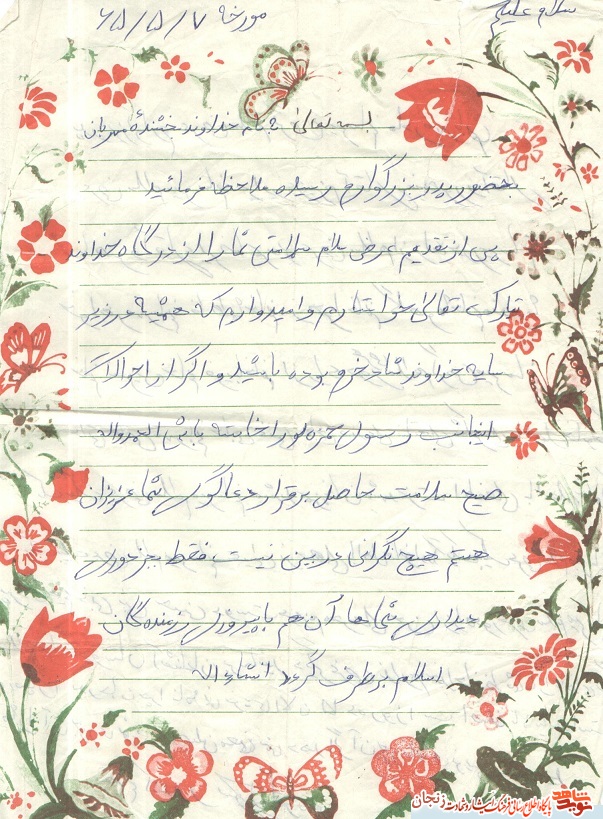 سلام علیکم
مورخه ۶۵/۵/۷
بسمه تعالی به نام خداوند بخشنده مهربان
بحضور پدر بزرگوارم رسیده ملاحظه فرمائید
پس از تقدیم عرض سلام سلامتی شما را از درگاه خداوند
تبارک تعالی خواستارم و امیدوارم که همیشه در زیر
سایه خداوند شاد خرم بوده باشید و اگر از احوالات
اینجانب رسول حمزه لو را خاسته باشی الحمدواله
صیح سلامت حاصل برقرار دعاگوی شما عزیزان
هستم هیچ نگرانی در بین نیست فقط بجز دوری
دیداری شماها آن هم با پیروزی رزمنده گان
اسلام برطرف گردد انشاءاله
نوید شاهد
پایگاه اطلاع رسانی فرهنگ ایثار و شهادت زنجان